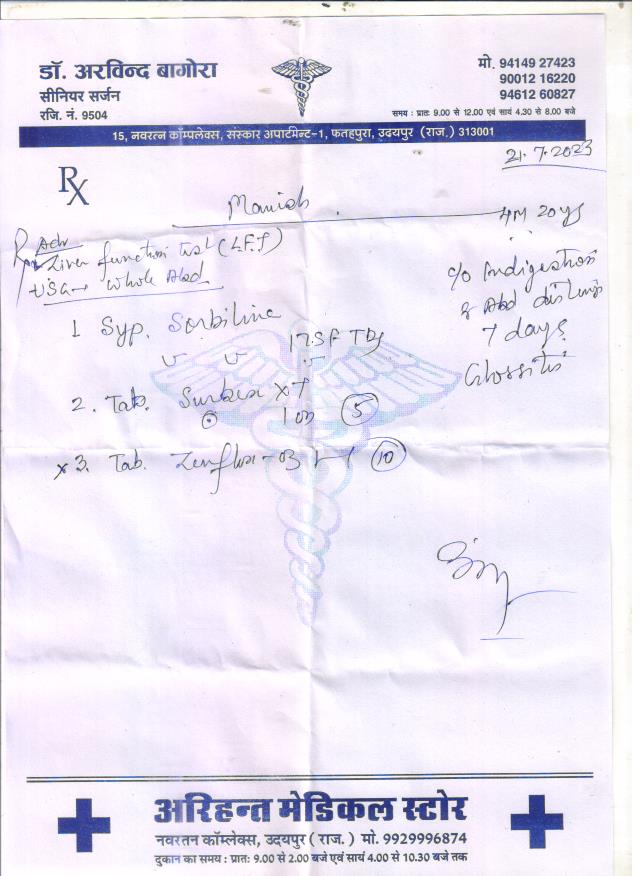 डॉ. अरविन्द बागोरा
सीनियर सर्जन
रजि. नं. 9504
मो. 94149 27423
90012 16220
94612 60827
समय : प्रातः 9.00 से 12.00 एवं सायं 4.30 से 8.00 बजे
15, नवरत्न कॉम्पलेक्स, संस्कार अपार्टमेन्ट-1, फतहपुरा, उदयपुर (राज.) 313001
21.7.2023
Rx
Manish
20 yrs
Adv
Liver function test (LFT)
USG - Whole Abd
c/o Indigestion
& Abd
7 days
Glossitis
1 Syp. Sorbiline
TDS
2. Tab. Surbex XT
1 OD (5)
x 3. Tab. Zenflox-OZ (10)
अरिहन्त मेडिकल स्टोर
नवरतन कॉम्लेक्स, उदयपुर ( राज. ) मो. 9929996874
दुकान का समय : प्रातः 9.00 से 2.00 बजे एवं सायं 4.00 से 10.30 बजे तक